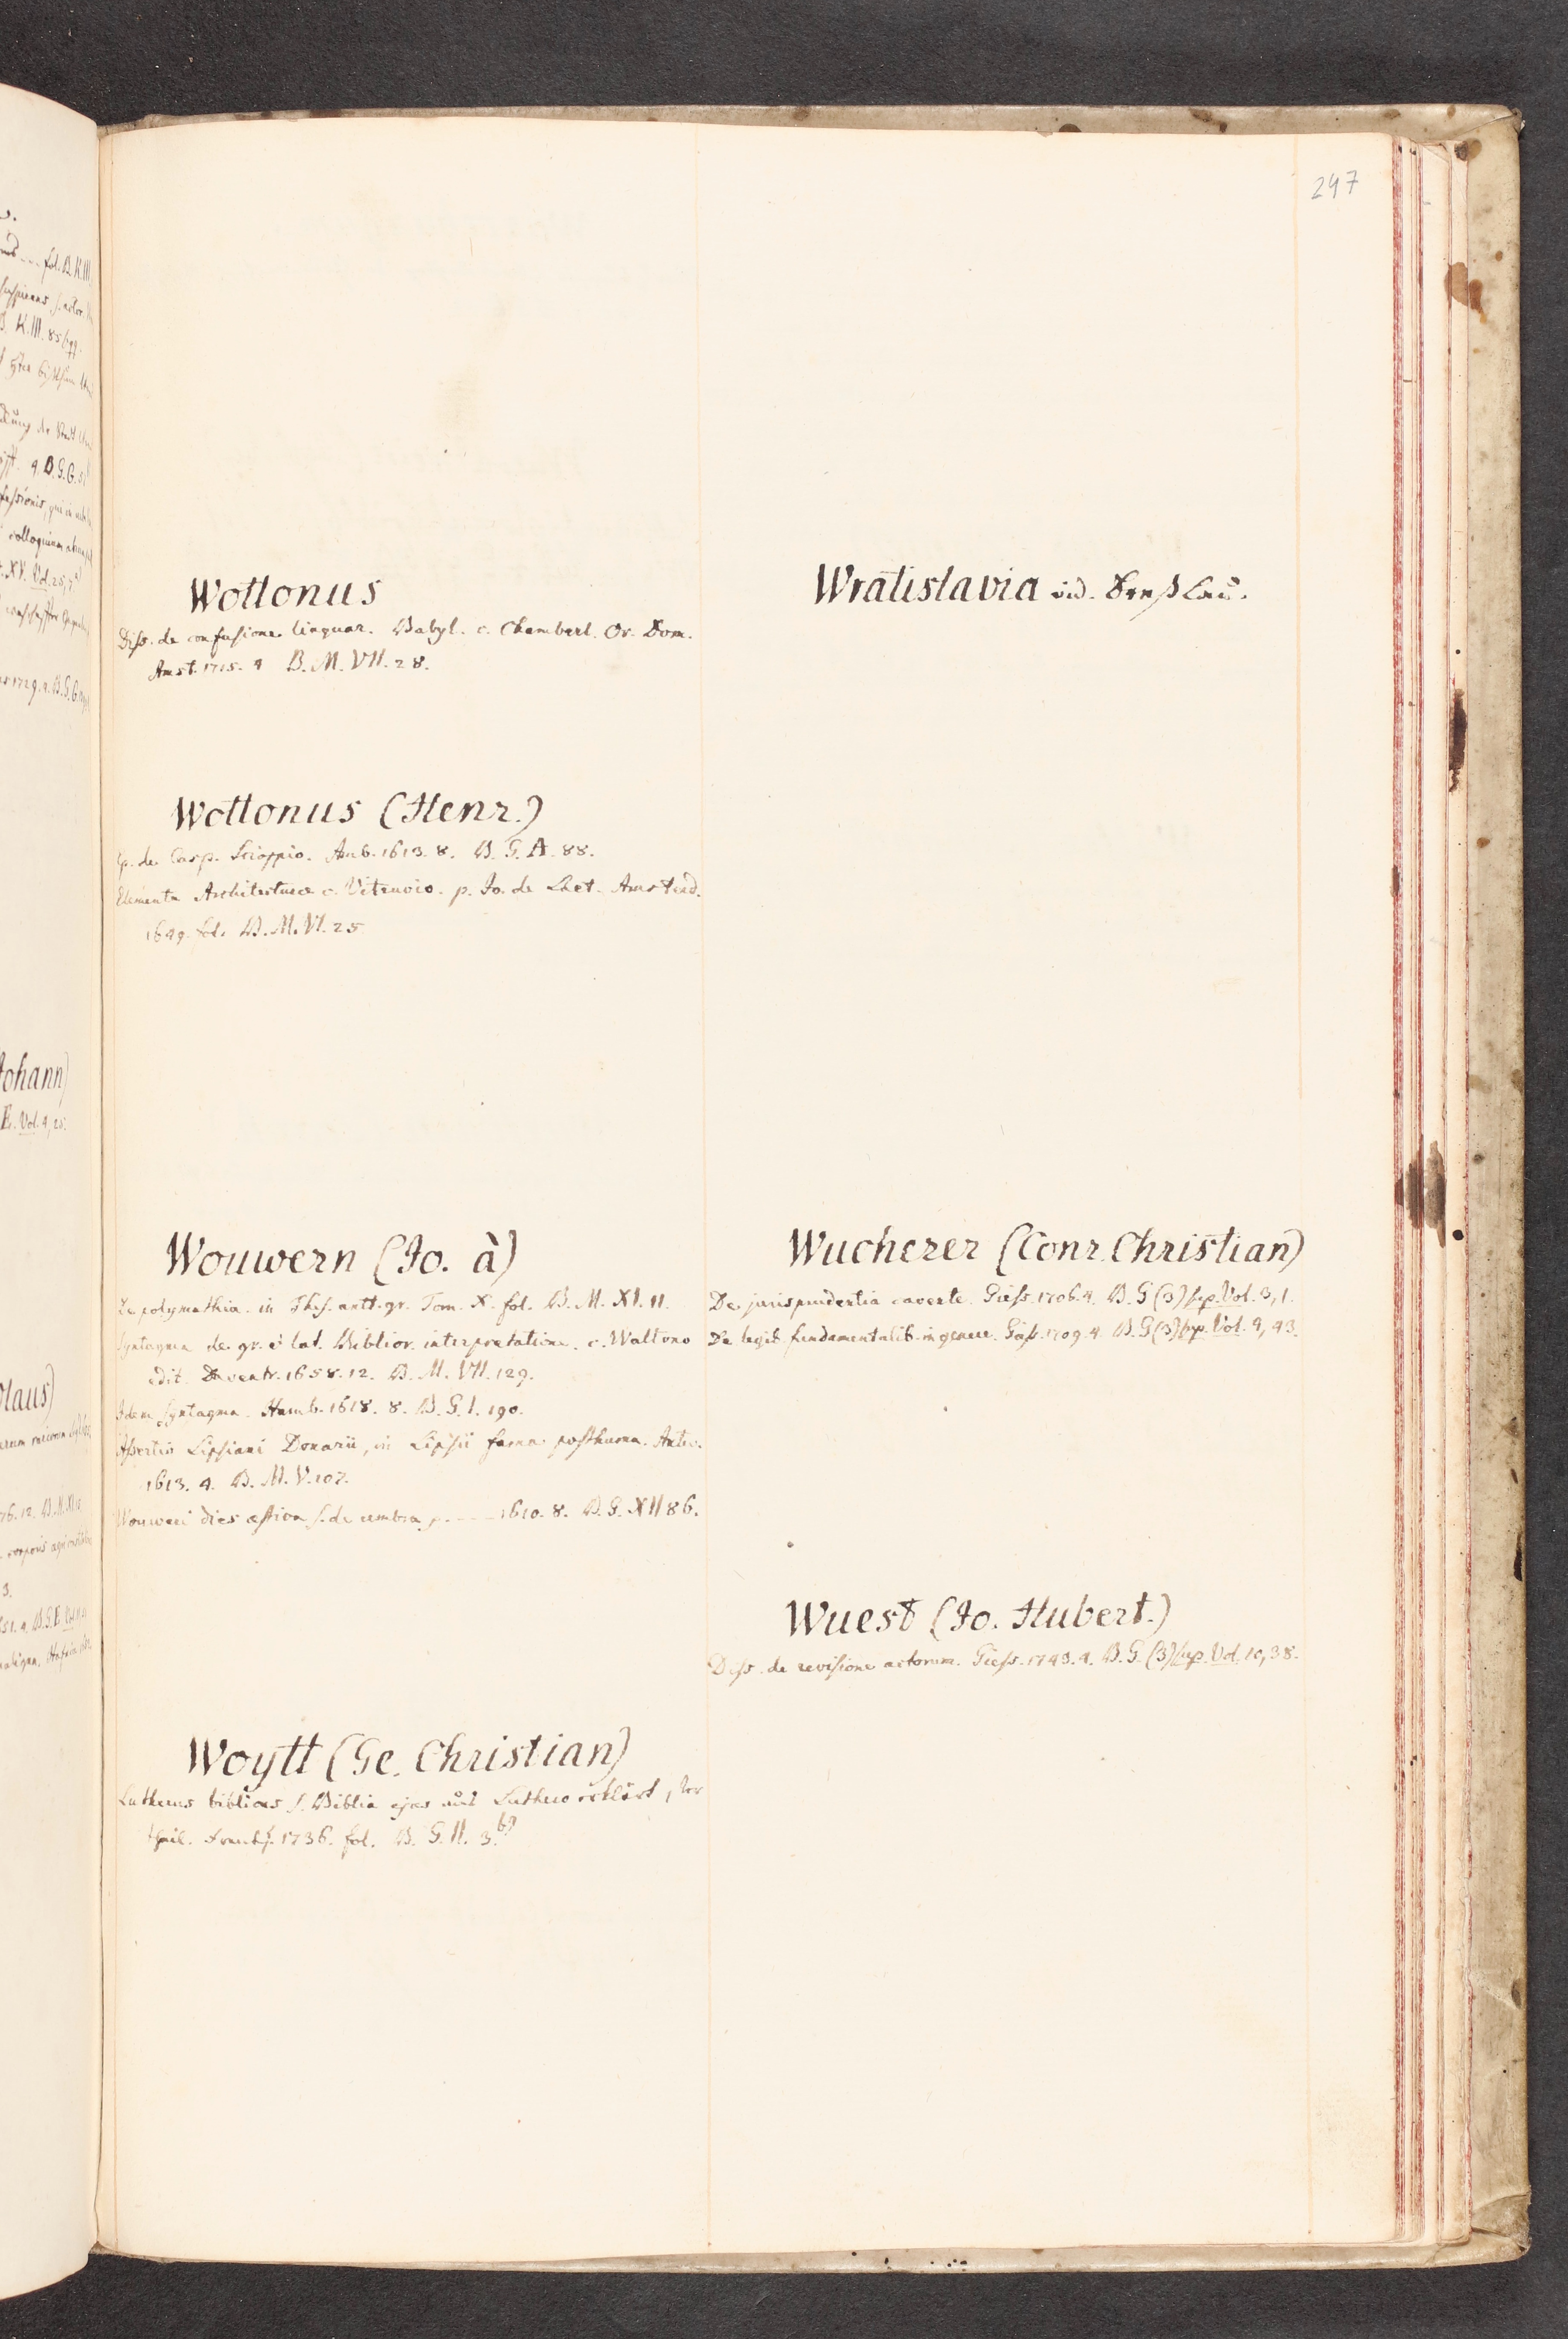 247
Wottonus
Diss. de confusione linguar. Babyl. c. Chamberl. Or. Dom.
Amst. 1715. 4 B. M. VII. 28.
Wottonus (Henr.)
Ep. de Casp. Scioppio. Amb. 1613. 8. B. G. A. 88.
Elementa Architecturae c. Vitruvio. p. Jo. de Laet. Amsterd.
1649. fol. B. M. VI. 25
Wouwern (Jo. à)
De polymathia. in Thes. antt. gr. Tom. X. fol. B. M. XI. 11.
Syntagma de gr. è lat. Biblior. interpretatione. c. Waltono
edit. Daventr. 1658. 12. B. M. VII. 129.
Idem Syntagma. Hamb. 1618. 8. B. G. I. 190.
Assertio Lipsiani Donarii, in Lipsii fama posthuma. Antv.
1613. 4. B. M. V. 107.
Wouweri dies aestiva s. de umbra p. --- 1610. 8. B. G. XII 86.
Woytt (Ge. Christian)
Lutherus biblicus s. Biblia ejus aus Luthero erklärt,
theil. Franckf. 1736. fol. B. G. II. 3. b)
Wratislavia vid. Breßlau.
Wucherer (Conr. Christian)
De jurisprudentia cavente. Giess. 1706. 4. B. G (3) sup. Vol. 3, 1.
De legib. fundamentalib. in genere. Giess. 1709. 4. B. G (3) sup. Vol. 4, 43.
Wuest (Jo. Hubert.)
Diss. de revisione actorum. Giess. 1743. 4. B. G. (3) sup. Vol. 10, 38.